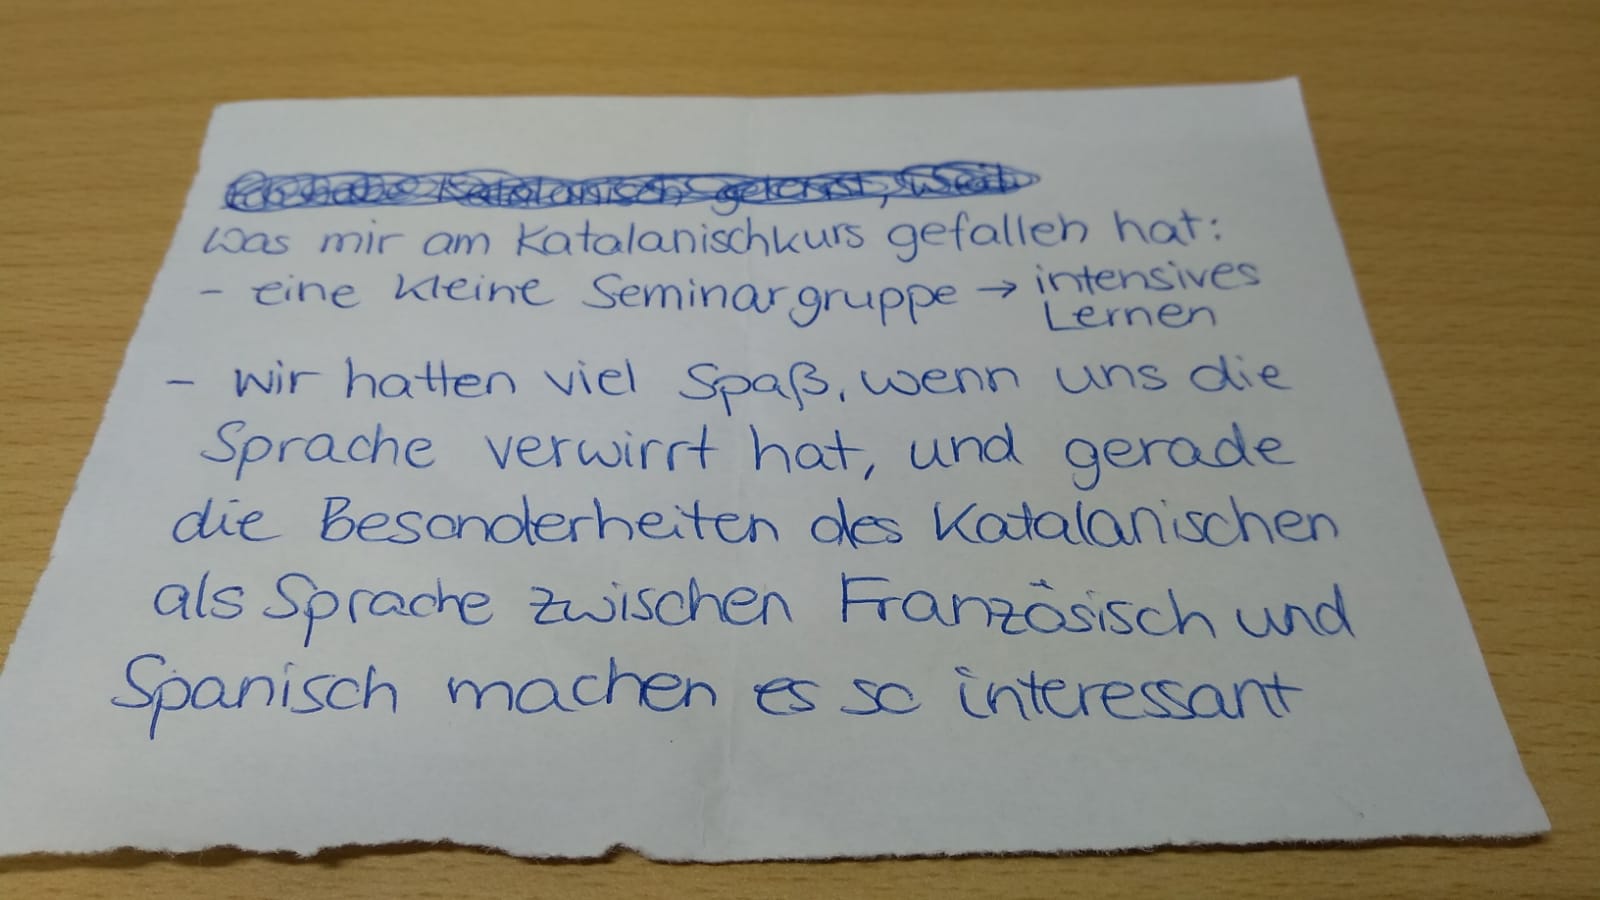 Was mir am Katalanischkurs gefallen hat:
- eine kleine Seminargruppe → intensives
Lernen
- wir hatten viel Spaß, wenn uns die
Sprache verwirrt hat, und gerade
die Besonderheiten des Katalanischen
als Sprache zwischen Französisch und
Spanisch machen es so interessant